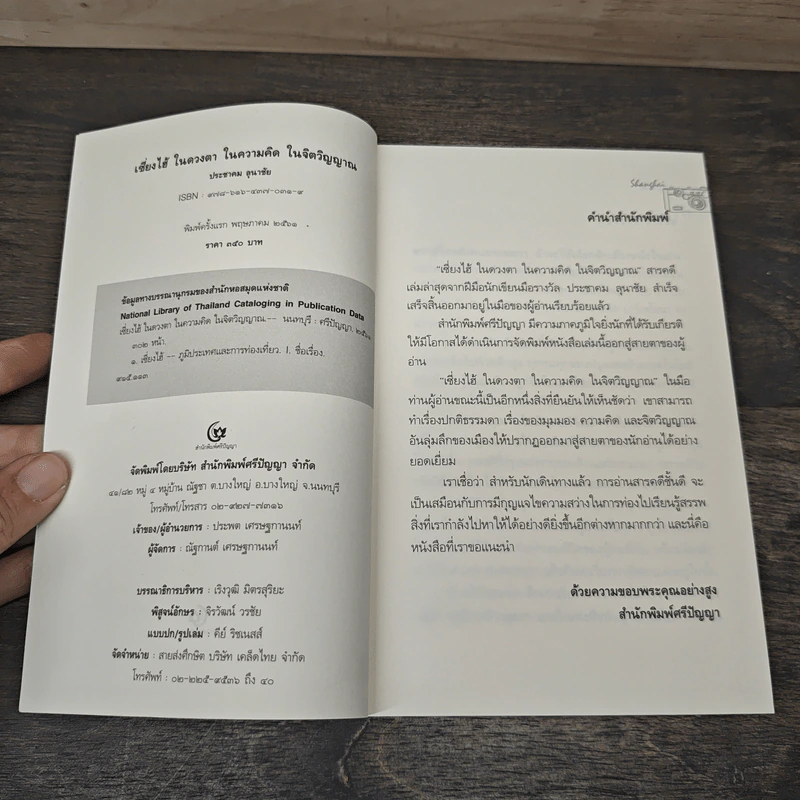 เซี่ยงไฮ้ ในดวงตา ในความคิด ในจิตวิญญาณ
ประชาคม ลุนาชัย
ISBN : ๙๗๘-๖๑๖-๔๓๗-๐๓๑-๙
พิมพ์ครั้งแรก พฤษภาคม ๒๕๖๑
ราคา ๓๔๐ บาท
ข้อมูลทางบรรณานุกรมของสำนักหอสมุดแห่งชาติ
National Library of Thailand Cataloging in Publication Data
เซี่ยงไฮ้ ในดวงตา ในความคิด ในจิตวิญญาณ.-- นนทบุรี : ศรีปัญญา, ๒๕๖๑
๓๐๒ หน้า.
๑. เซี่ยงไฮ้ -- ภูมิประเทศและการท่องเที่ยว. I. ชื่อเรื่อง.
๙๑๕.๑๑๓
สำนักพิมพ์ศรีปัญญา
จัดพิมพ์โดยบริษัท สำนักพิมพ์ศรีปัญญา จำกัด
๔๑/๘๒ หมู่ ๔ หมู่บ้าน ณัฐชา ต.บางใหญ่ อ.บางใหญ่ จ.นนทบุรี
โทรศัพท์/โทรสาร ๐๒-๙๒๗-๗๓๑๖
เจ้าของ/ผู้อำนวยการ : ประพต เศรษฐกานนท์
ผู้จัดการ : ณัฐกานต์ เศรษฐกานนท์
บรรณาธิการบริหาร : เริงวุฒิ มิตรสุริยะ
พิสูจน์อักษร : จิรวัฒน์ วรชัย
แบบปก/รูปเล่ม : คีย์ ริชเนสส์
จัดจำหน่าย : สายส่งศึกษิต บริษัท เคล็ดไทย จำกัด
โทรศัพท์ : ๐๒-๒๒๕-๙๕๓๖ ถึง ๔๐
Shanghai
คำนำสำนักพิมพ์
"เซี่ยงไฮ้ ในดวงตา ในความคิด ในจิตวิญญาณ" สารคดี
เล่มล่าสุดจากฝีมือนักเขียนมือรางวัล ประชาคม ลุนาชัย สำเร็จ
เสร็จสิ้นออกมาอยู่ในมือของผู้อ่านเรียบร้อยแล้ว
สำนักพิมพ์ศรีปัญญา มีความภาคภูมิใจยิ่งนักที่ได้รับเกียรติ
ให้มีโอกาสได้ดำเนินการจัดพิมพ์หนังสือเล่มนี้ออกสู่สายตาของผู้
อ่าน
"เซี่ยงไฮ้ ในดวงตา ในความคิด ในจิตวิญญาณ" ในมือ
ท่านผู้อ่านขณะนี้เป็นอีกหนึ่งสิ่งที่ยืนยันให้เห็นชัดว่า เขาสามารถ
ทำเรื่องปกติธรรมดา เรื่องของมุมมอง ความคิด และจิตวิญญาณ
อันลุ่มลึกของเมืองให้ปรากฏออกมาสู่สายตาของนักอ่านได้อย่าง
ยอดเยี่ยม
เราเชื่อว่า สำหรับนักเดินทางแล้ว การอ่านสารคดีชั้นดี จะ
เป็นเสมือนกับการมีกุญแจไขความสว่างในการท่องไปเรียนรู้สรรพ
สิ่งที่เรากำลังไปหาให้ได้อย่างดียิ่งขึ้นอีกต่างหากมากกว่า และนี่คือ
หนังสือที่เราขอแนะนำ
ด้วยความขอบพระคุณอย่างสูง
สำนักพิมพ์ศรีปัญญา